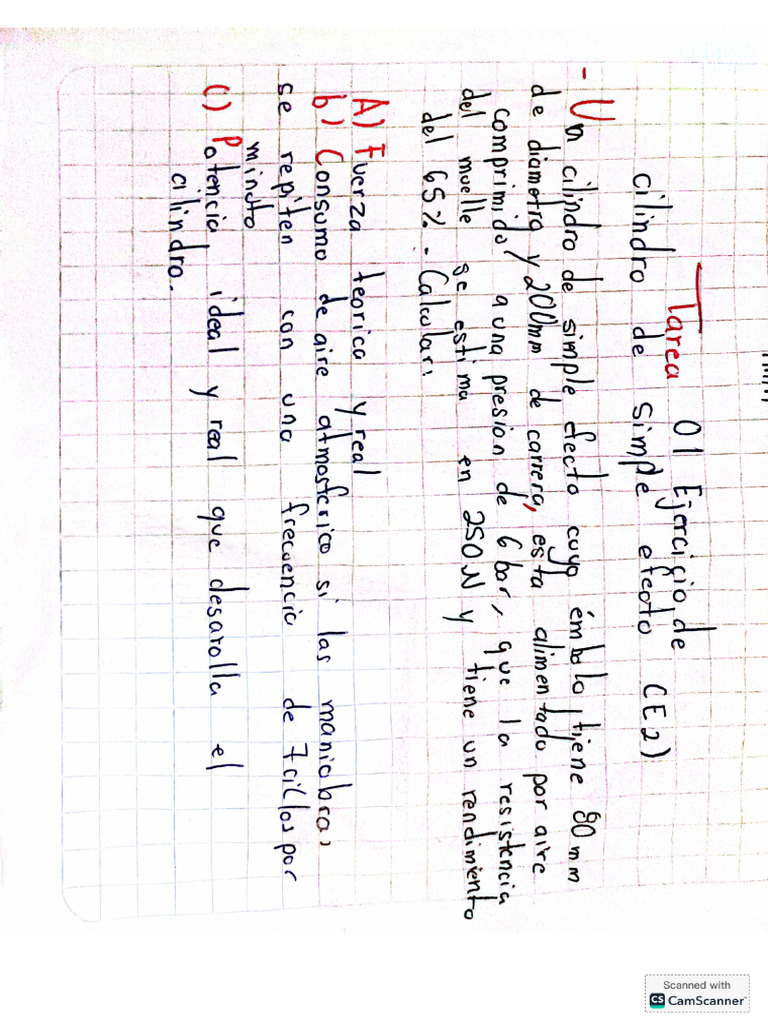 Tarea 01 Ejercicio de
cilindro de simple efecto (E2)
- Un cilindro de simple efecto cuyo émbolo tiene 80mm
de diametro y 200mm de carrera, esta alimentado por aire
comprimido a una presion de 6 bar, que la resistencia
del muelle se estima en 250N y tiene un rendimiento
del 65%. Calcular:
A) Fuerza teorica y real
b) Consumo de aire atmosferico si las maniobras
se repiten con una frecuencia de 7 ciclos por
minuto
C) Potencia ideal y real que desarolla el
cilindro.
Scanned with
CS CamScanner